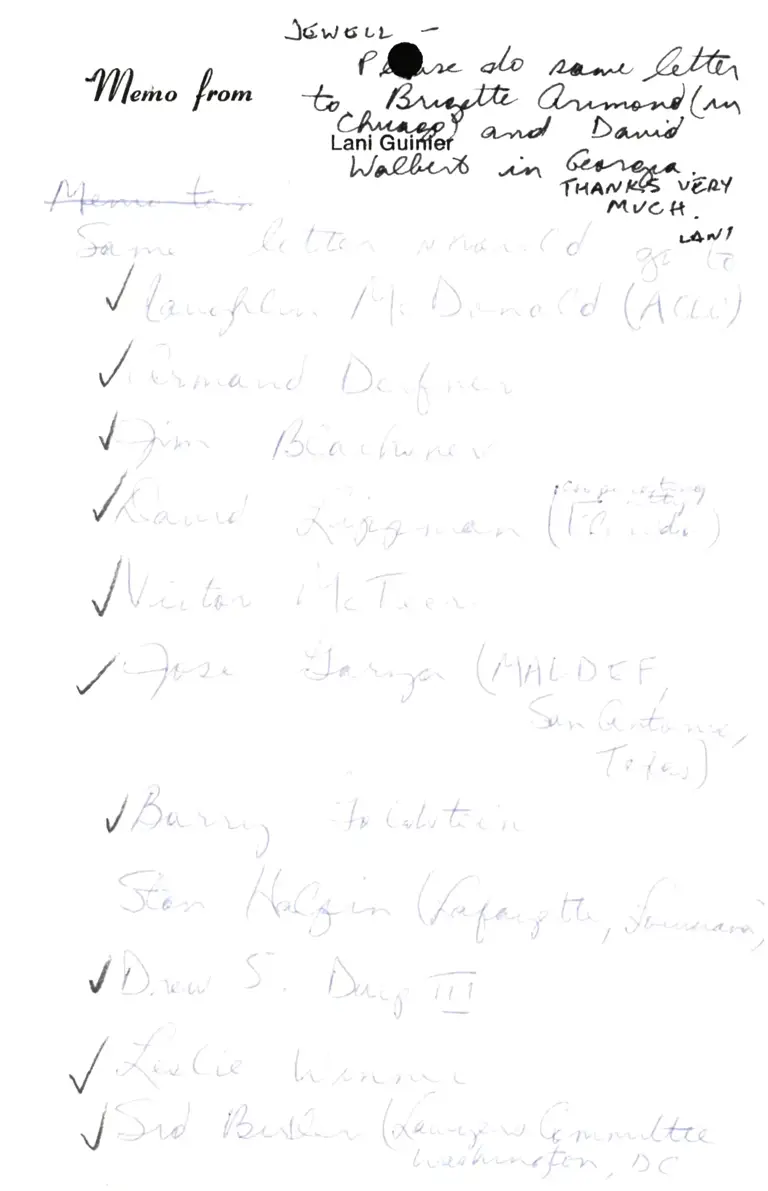 JEWELL -
Please do same letter
Memo from
to Brigette Arimond (in
Chicago) and David
Lani Guinier
Walbert in Georgia.
THANKS VERY
MUCH.
LANI
Memo to:
Same letter should go to
✓ Laughlin McDonald (ACLU)
✓ Armand Derfner
✓ Jim Blacksher
✓ David Lippman (
✓ Victor McTeer
✓ Jose Garza (MALDEF,
San Antonio,
Texas)
✓ Barry Goldstein
Stan Halpin (Lafayette, Louisiana,
✓ Drew S. Days III
✓ Leslie Winner
✓ Sid Butler (Lawyers Committee
Washington, DC